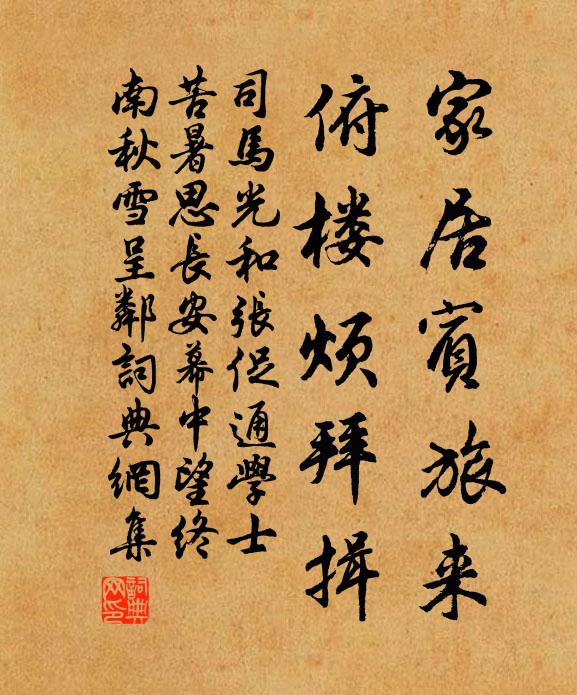 家居賓旅来
俯楼煩拜揖
司馬光和張伲通學士
苦暑思長安幕中望终
南秋雪呈鄰詞典網集
詞典网印